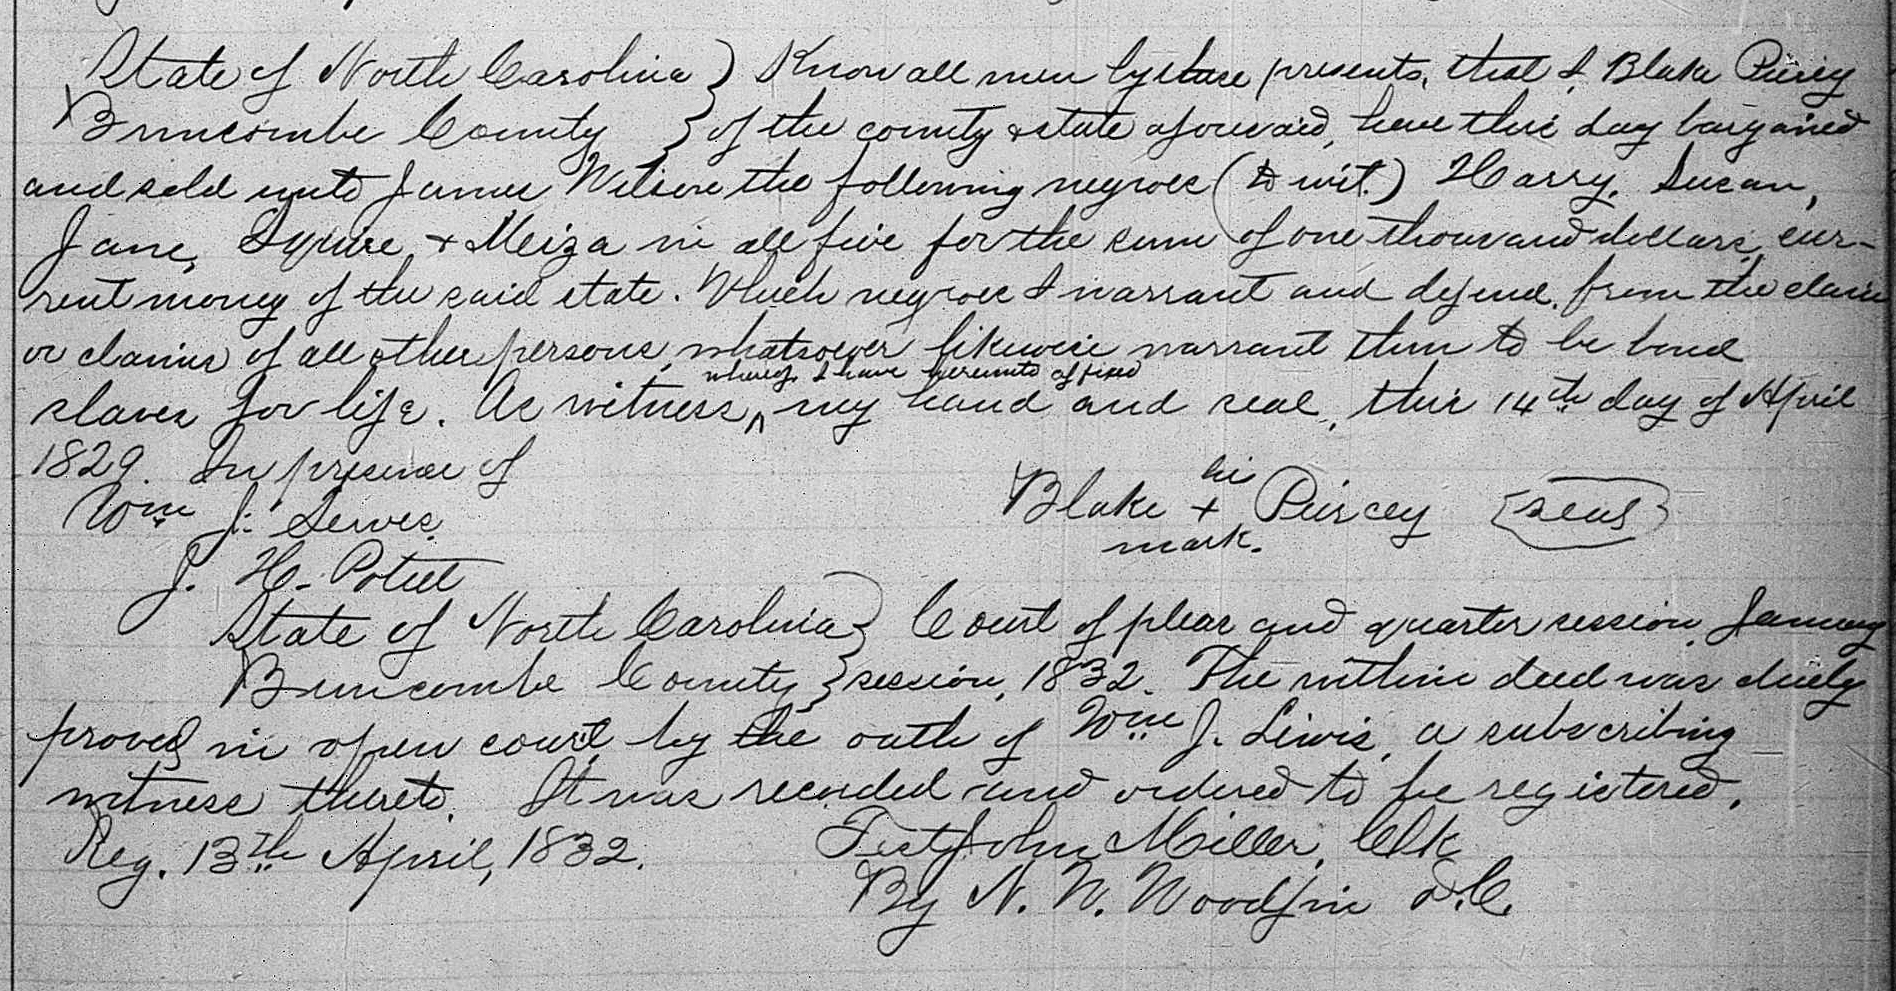 State of North Carolina } Know all men by these presents, that I, Blake Piercy
Buncombe County } of the county & state aforesaid, have this day bargained
and sold unto James Wilson the following negroes (to wit.) Harry, Susan,
Jane, Squire & Meiza in all five for the sum of one thousand dollars, cur-
rent money of the said state. Which negroes I warrant and defend from the claim
or claims of all other persons, whatsoever likewise warrant them to be bond
whereof I have hereunto affixed
slaves for life. As witness ^ my hand and seal, this 14th day of April
1829. In presence of
his
Wm J. Lewis. Blake + Piercey {seal}
mark.
J. H. Poteet
State of North Carolina } Court of pleas and quarter session, January
Buncombe County } session, 1832. The within deed was duly
proved in open court by the oath of Wm J. Lewis, a subscribing
witness thereto. It was recorded and ordered to be registered.
Reg. 13th April, 1832. Test John Miller, Clk
By N. W. Woodfin D.C.